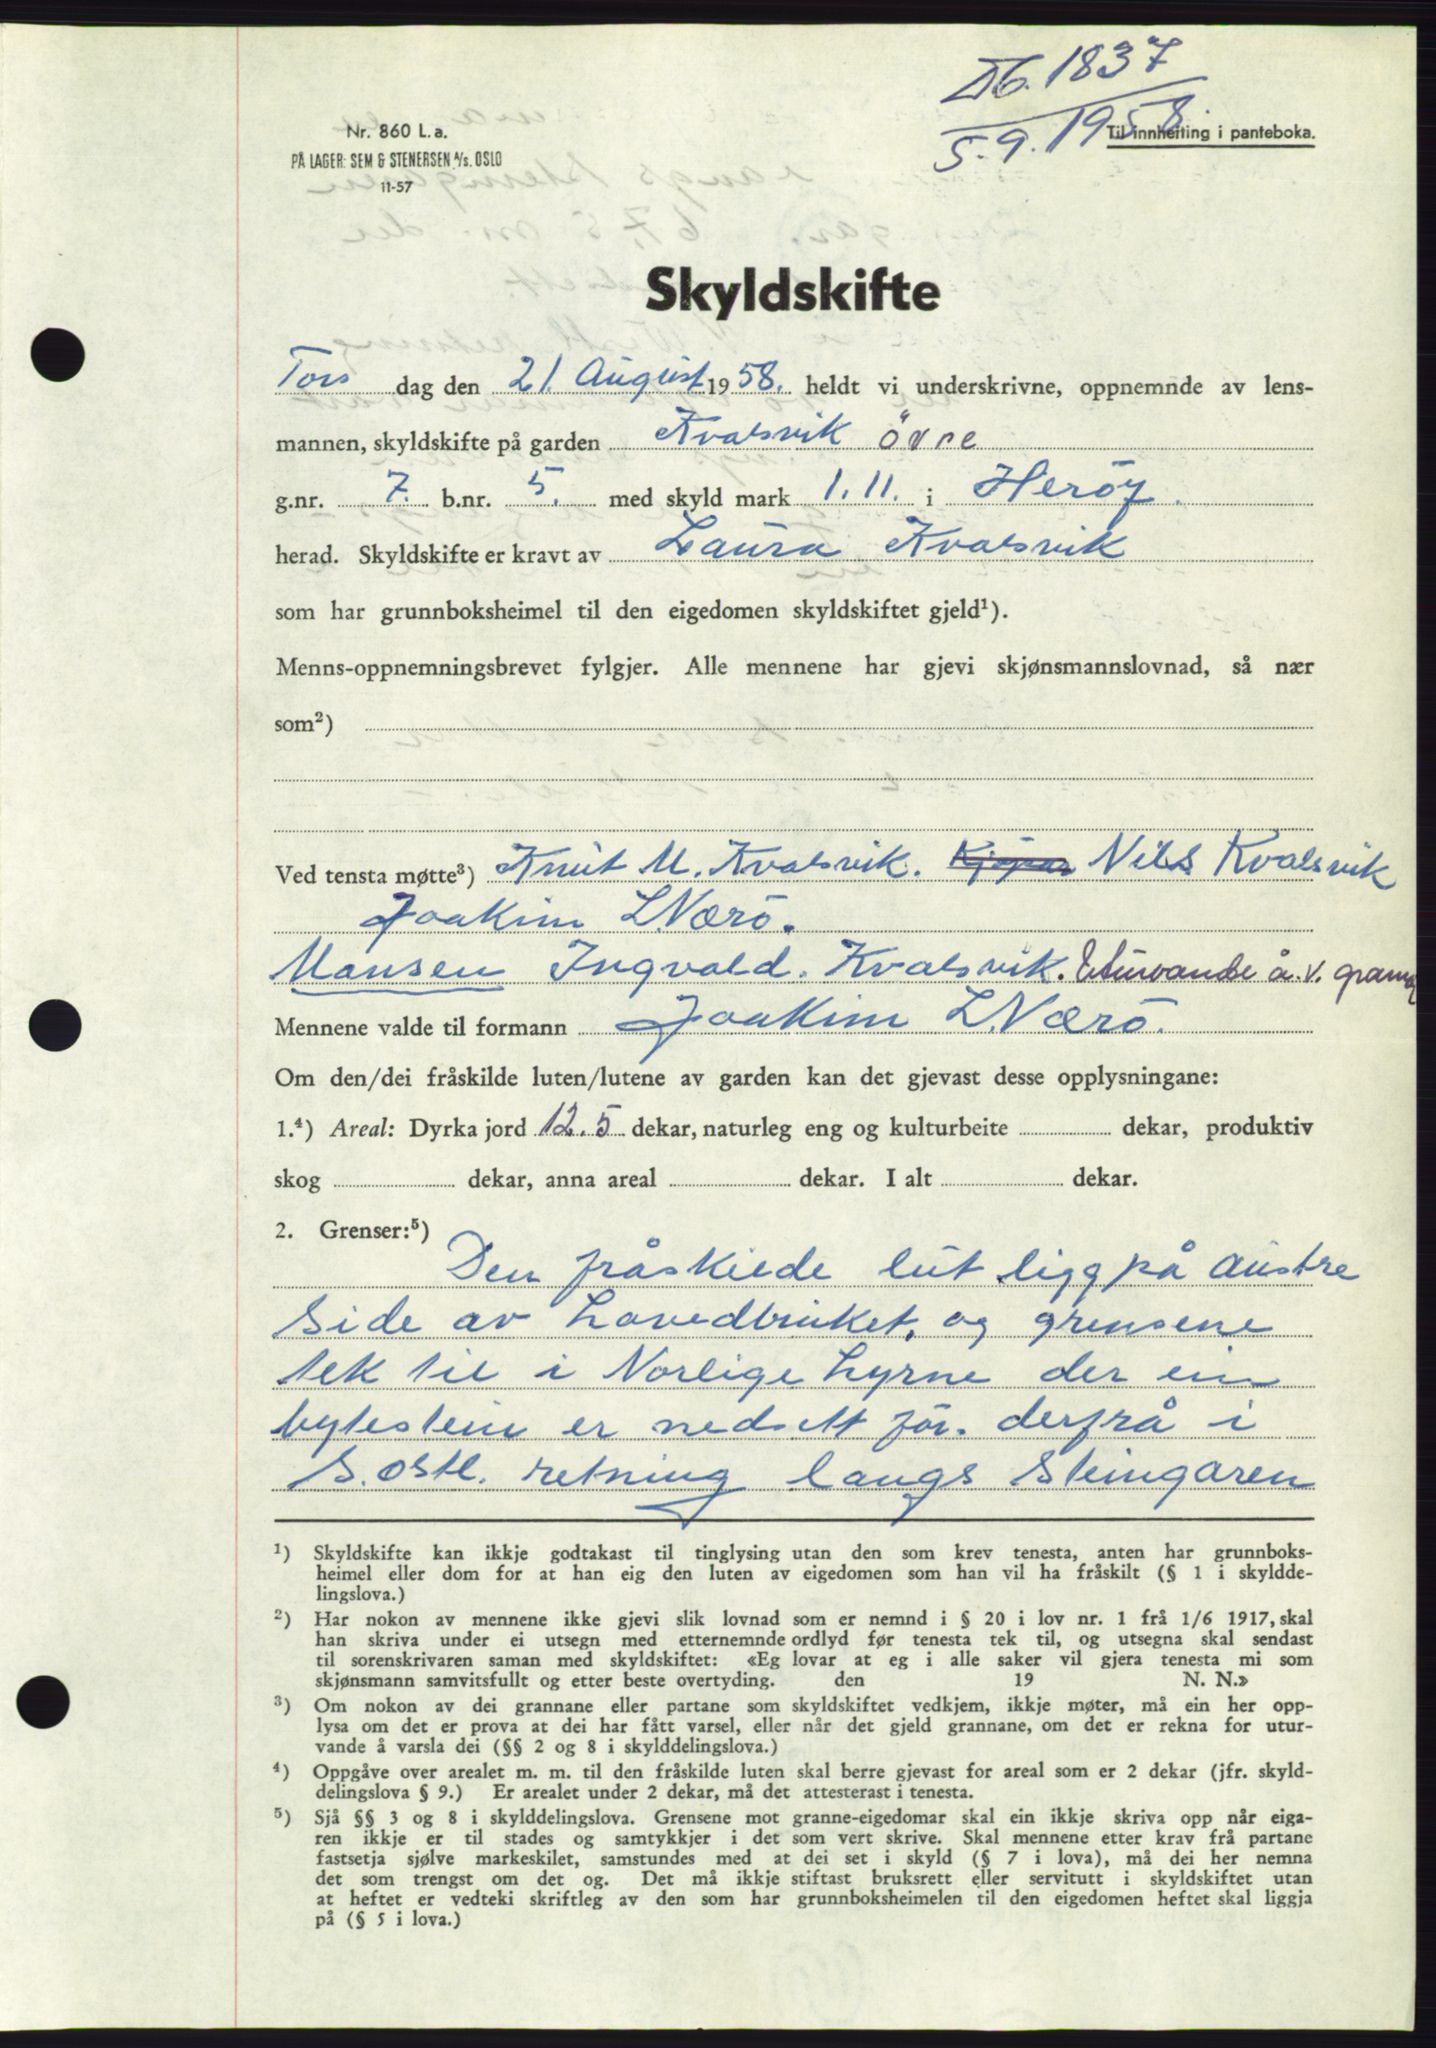 Db. 1837
5.9.1958.
Nr. 860 L. a.
Til innhefting i panteboka.
PÅ LAGER: SEM & STENERSEN A/s. OSLO
11-57
Skyldskifte
Tors dag den 21. August 1958. heldt vi underskrivne, oppnemnde av lens-
mannen, skyldskifte på garden Kvalsvik övre
g.nr. 7. b.nr. 5. med skyld mark 1.11. i Heröy.
herad. Skyldskifte er kravt av Laura Kvalsvik
som har grunnboksheimel til den eigedomen skyldskiftet gjeld¹).
Menns-oppnemningsbrevet fylgjer. Alle mennene har gjevi skjønsmannslovnad, så nær
som²)
Ved tensta møtte³) Knut M. Kvalsvik. Nils Kvalsvik
Joakim L. Nærö.
Mansen Ingvald. Kvalsvik. Uturvande å. v. grann
Mennene valde til formann Joakim L. Nærö.
Om den/dei fråskilde luten/lutene av garden kan det gjevast desse opplysningane:
1.⁴) Areal: Dyrka jord 12.5 dekar, naturleg eng og kulturbeite dekar, produktiv
skog dekar, anna areal dekar. I alt dekar.
2. Grenser:⁵)
Den fråskilde lut ligg på austre
side av Hovedbruket, og grensene
tek til i Norlige hyrne der ein
bytestein er nedsett för. derfrå i
S. ostl. retning langs Steingaren
¹) Skyldskifte kan ikkje godtakast til tinglysing utan den som krev tenesta, anten har grunnboks-
heimel eller dom for at han eig den luten av eigedomen som han vil ha fråskilt (§ 1 i skyldde-
lingslova.)
²) Har nokon av mennene ikke gjevi slik lovnad som er nemnd i § 20 i lov nr. 1 frå 1/6 1917, skal
han skriva under ei utsegn med etternemnde ordlyd før tenesta tek til, og utsegna skal sendast
til sorenskrivaren saman med skyldskiftet: «Eg lovar at eg i alle saker vil gjera tenesta mi som
skjønsmann samvitsfullt og etter beste overtyding. den 19 N. N.»
³) Om nokon av dei grannane eller partane som skyldskiftet vedkjem, ikkje møter, må ein her opp-
lysa om det er prova at dei har fått varsel, eller når det gjeld grannane, om det er rekna for utur-
vande å varsla dei (§§ 2 og 8 i skylddelingslova.)
⁴) Oppgåve over arealet m. m. til den fråskilde luten skal berre gjevast for areal som er 2 dekar (jfr. skyld-
delingslova § 9.) Er arealet under 2 dekar, må det attesterast i tenesta.
⁵) Sjå §§ 3 og 8 i skylddelingslova. Grensene mot granne-eigedomar skal ein ikkje skriva opp når eiga-
ren ikkje er til stades og samtykkjer i det som vert skrive. Skal mennene etter krav frå partane
fastsetja sjølve markeskilet, samstundes med at dei set i skyld (§ 7 i lova), må dei her nemna
det som trengst om det og. Det må ikkje stiftast bruksrett eller servitutt i skyldskiftet utan
at heftet er vedteki skriftleg av den som har grunnboksheimelen til den eigedomen heftet skal liggja
på (§ 5 i lova.)